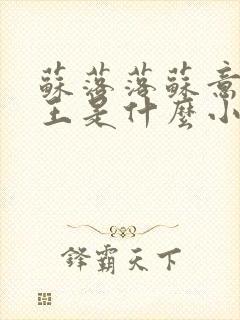 蘇落落蘇意
主是什麼小
鋒霸天下